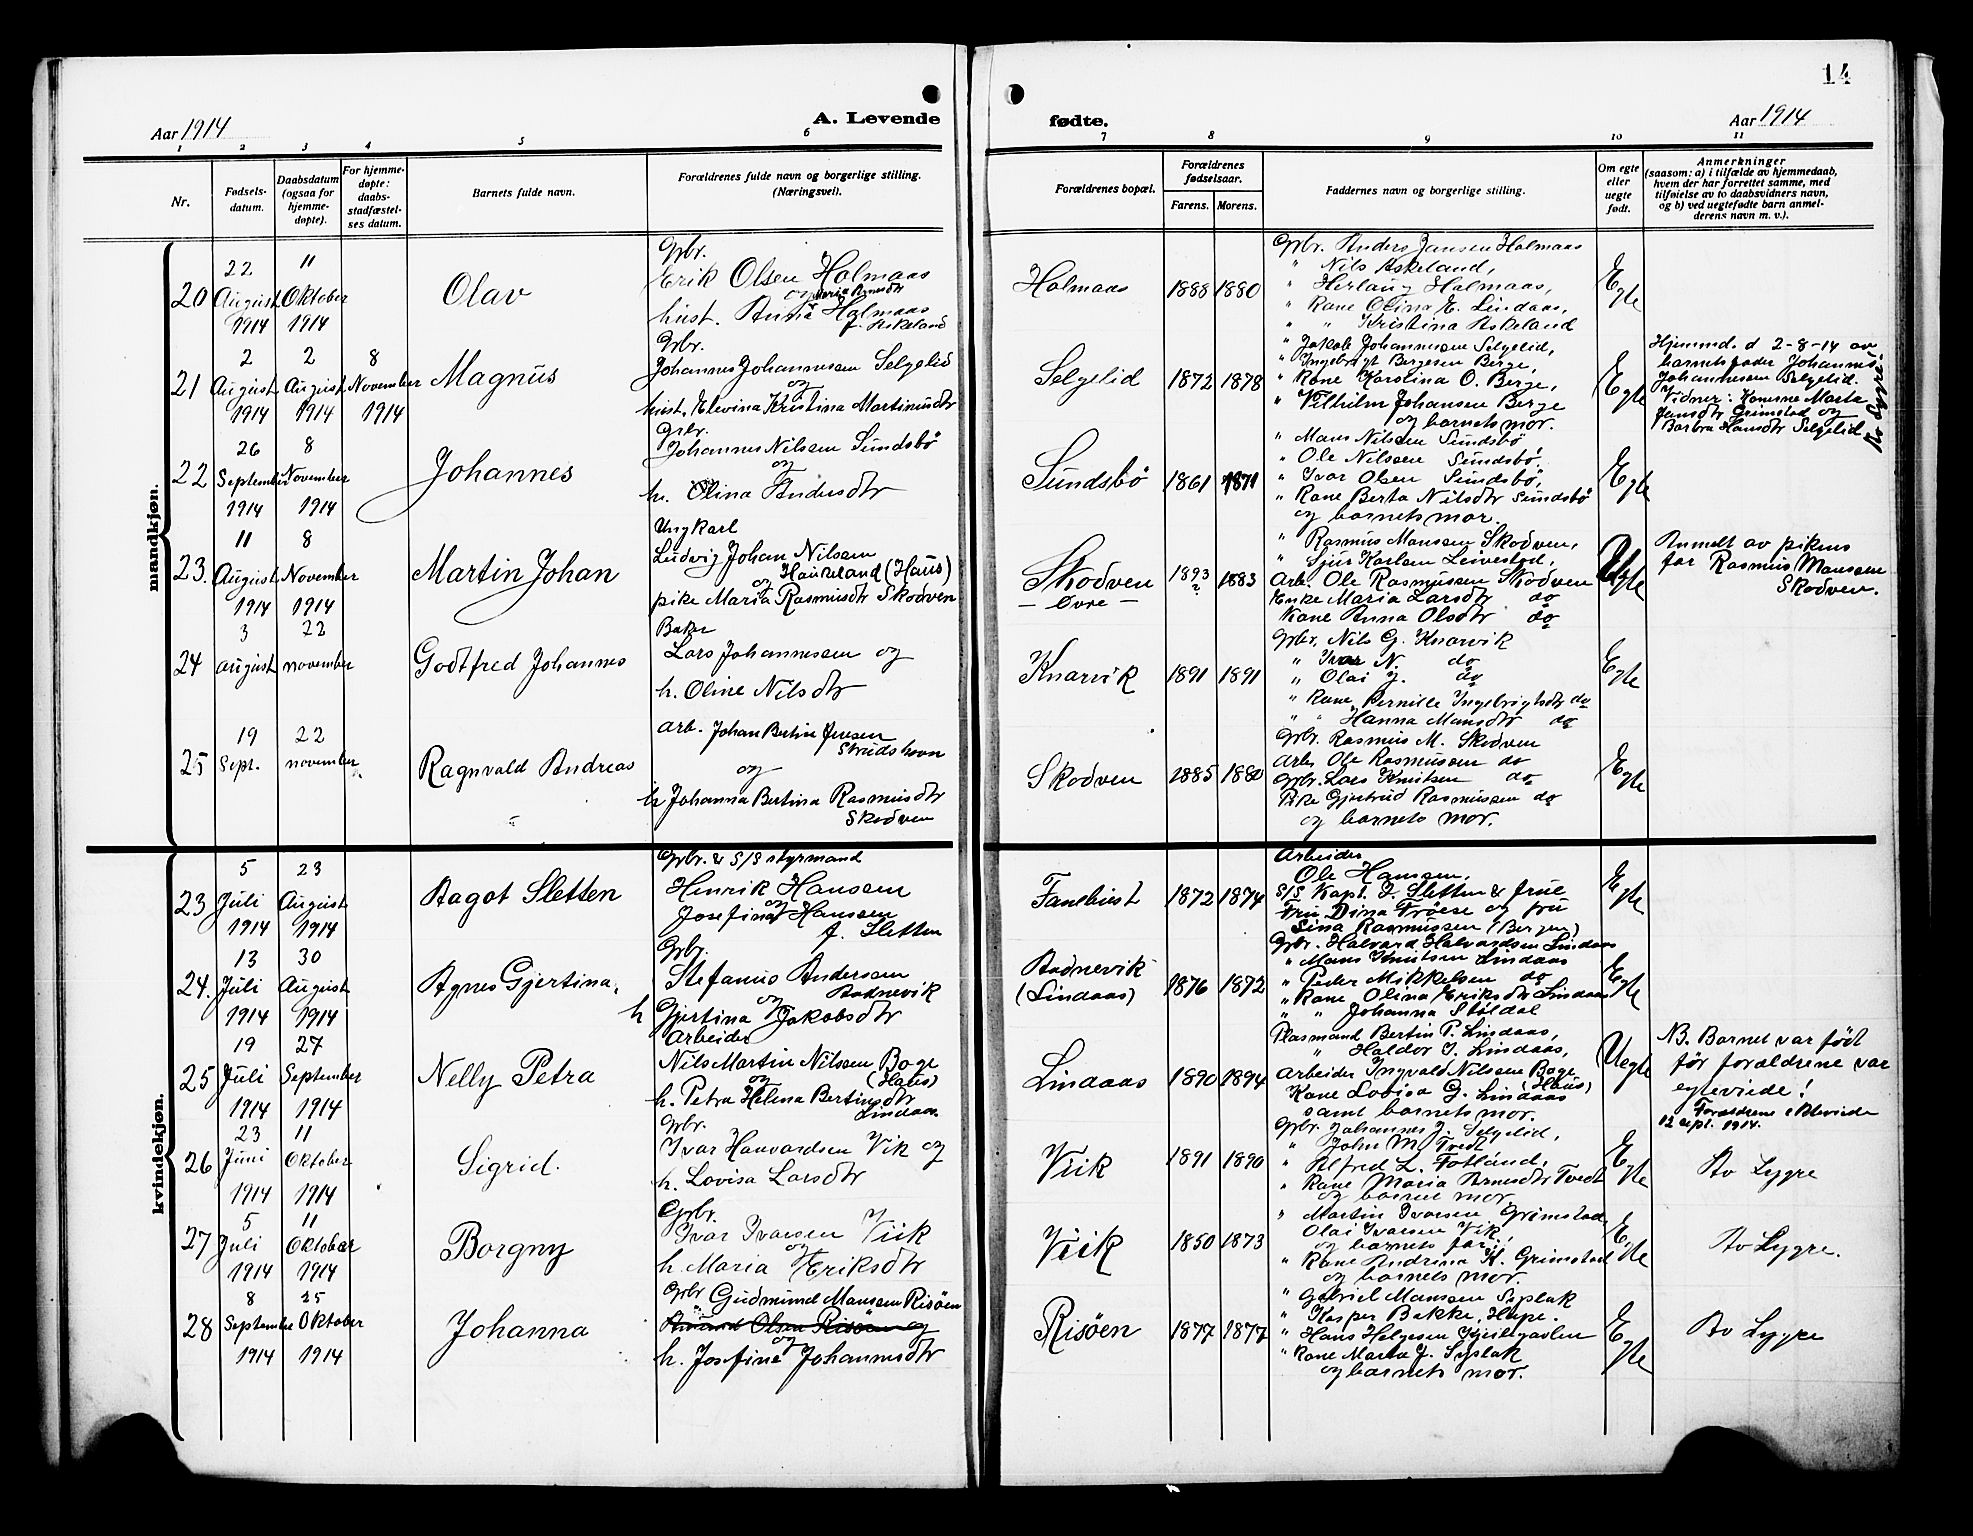 14
Aar 1914
A. Levende
fødte.
Aar 1914
1 2 3 4 5 6 7 8 9 10 11
Nr.
Fødsels-
datum.
Daabsdatum
(ogsaa for
hjemme-
døpte).
For hjemme-
døpte:
daabs-
stadfæstel-
ses datum.
Barnets fulde navn.
Forældrenes fulde navn og borgerlige stilling.
(Næringsvei).
Forældrenes bopæl.
Forældrenes
fødselsaar.
Farens. Morens.
Faddernes navn og borgerlige stilling.
Om egte
eller
uegte
født.
Anmerkninger
(saasom: a) i tilfælde av hjemmedaab,
hvem der har forrettet samme, med
tilføielse av to daabsvidners navn,
og b) ved uegtefødte barn anmel-
derens navn m. v.).
mandkjøn.
20
22 August 1914
11 Oktober 1914
Olav
Gbr.
Erik Olsen Holmaas
og Maria Arnesdtr
hust. Anna Holmaas
f. Askeland
Holmaas
1888 1880
Gbr. Anders Jansen Holmaas
" Nils Askeland,
" Herlaug Holmaas,
" Kone Olina E. Lindaas,
" " Kristina Askeland
Egte
21
2 August 1914
2 August 1914
8 November 1914
Magnus
Gbr.
Johannes Johannesen Selgelid
og
hust. Elevina Kristina Martinusdtr
Selgelid
1872 1878
" Jakob Johannesen Selgelid,
" Ingebrigt Bergesen Berge,
" Kone Karolina O. Berge,
" Vilhelm Johansen Berge
og barnets mor.
Egte
Hjemmd. d 2-8-14 av
barnets fader Johannes
Johannesen Selgelid.
Vidner: Konerne Marta
Jensdtr Grimstad og
Barbra Hansdtr Selgelid
Av Lygre.
22
26 September 1914
8 November 1914
Johannes
Gbr.
Johannes Nilsen Sundsbö
og
h. Olina Andersdtr
Sundsbö
1861 1871
" Mans Nilsen Sundsbö
" Ole Nilssen Sundsbö,
" Ivar Olsen Sundsbö,
" Kone Berta Nilsdtr Sundsbö
og barnets mor.
Egte
23.
11 August 1914
8 November 1914
Martin Johan
Ungkarl
Ludvig Johan Nilsen
og Haukeland (Haus)
pike Maria Rasmusdtr Skodven
Skodven
– Øvre –
1893 ? 1883
" Rasmus Mansen Skodven,
" Sjur Karlsen Leivestad,
Arb. Ole Rasmussen Skodven
Enke Maria Larsdtr do
Kone Anna Olsdtr do
Uegte
Anmelt av pikens
far Rasmus Mansen
Skodven.
24
3 august
22 november
Godtfred Johannes
Baker
Lars Johannessen og
h. Oline Nilsdtr
Knarvik
1891 1891
Gbr. Nils G. Knarvik
" Ivar N. do
" Olai J. do
" Kone Pernille Ingebrigtsdtr do
" " Hanna Mansdtr do
Egte
25
19 Sept.
22 november
Ragnvald Andreas
Arb. Johan Bertin Jensen
Strudshavn
og
h Johanna Bertina Rasmusdtr
Skodven
Skodven
1885 1880
Gbr. Rasmus M. Skodven
Arb. Ole Rasmussen do
Gbr. Lars Knutsen do
Pike Gjertrud Rasmussen do
og barnets mor.
Egte
kvindekjøn.
23
5 Juli 1914
23 August 1914
Aagot Sletten
Gbr. & S/S styrmand
Henrik Hansen
og
Josefina Hansen
f. Sletten
Fanebust
1872 1874
Arbeider
Ole Hansen,
S/S Kapt. J. Sletten & frue
Fru Dina Fröese og fru
Lina Rasmussen (Bergen)
Egte
24.
13 Juli 1914
30 August 1914
Agnes Gjertina,
Gbr.
Stefanus Andersen
og Aadnevik
h Gjertina Jakobsdtr
Aadnevik
(Lindaas)
1876 1872
Gbr. Halvard Halvardsen Lindaas
" Mans Knutsen Lindaas
" Peder Mikkelsen do
" Kone Olina Eriksdtr Lindaas
" " Johanna Stöldal
Egte
25
19 Juli 1914
27 September 1914
Nelly Petra
Arbeider
Nils Martin Nilssen Boge
og (Haus)
h. Petra Helena Bertinsdtr
Lindaas.
Lindaas
1890 1894
Plasmand Bertin P. Lindaas,
" Haldor J. Lindaas,
Arbeider Ingvald Nilssen Boge
(Haus)
Kone Lovisa G. Lindaas
samt barnets mor.
Uegte
NB. Barnet var født
før forældrene var
egteviede!
Forældrene egteviede
12 sept. 1914.
26
23 Juni 1914
11 Oktober 1914
Sigrid.
Gbr.
Ivar Haavardsen Vik og
h. Lovisa Larsdtr
Viik
1891 1890
Gbr. Johannes J. Selgelid,
" John M. Tvedt
" Alfred L. Fotland,
" Kone Maria Arnesdtr Tvedt
og barnets mor.
Egte
Av Lygre
27
5 Juli 1914
11 Oktober 1914
Borgny
Gbr.
Ivar Ivarsen Viik
og
h Maria Eriksdtr
Viik
1850 1873
" Martin Ivarsen Grimstad
Olai Ivarsen Vik,
og barnets far,
" Kone Andrina K. Grimstad
og barnets mor.
Egte
Av Lygre.
28
8 September 1914
25 Oktober 1914
Johanna
Gbr Gudmund Mansen Risöen
Olsen Risöen og
og
h. Josefine Johannesdtr
Risöen
1877 1877
" Gabriel Mansen Syslak
" Kasper Bakke, Hope.
" Hans Helgesen Kjeilegavlen
" Kone Marta J. Syslak
og barnets mor.
Egte
Av Lygre